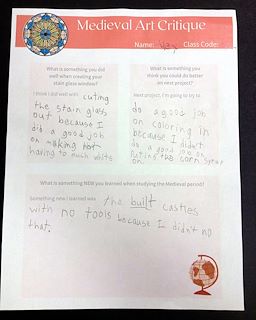 Medieval Art Critique
Name: Class Code:
What is something you did
well when creating your
stain glass window?
I think I did well with cuting
the stain glass
out because I
did a good job
on making not
having to much white
What is something you
think you could do better
on next project?
Next project, I'm going to try to
do a good job
on coloring in
because I didn't
do a good job on
puting the corn
on
What is something NEW you learned when studying the Medieval period?
Something new I learned was the built castles
with no tools because I didn't no
that.